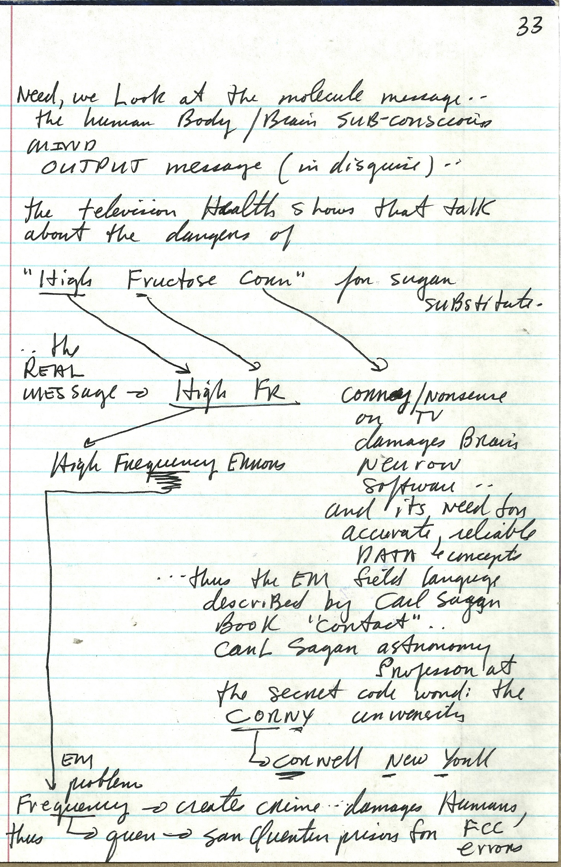 33
Need, we Look at the molecule message..
the human Body/Brain SUB-conscious
MIND
OUTPUT message (in disguise)..
the television Health shows that talk
about the dangers of
"High Fructose Corn" for sugar
SUBstitute.
.. the
REAL
MESSAGE → High FR
corny/Nonsense
on TV
damages Brain
Neurow
Software ..
High Frequency Errors
and its need for
accurate, reliable
DATA & concepts
...thus the EM field language
described by Carl Sagan
Book "Contact"..
Carl Sagan astronomy
Professor at
the secret code word: the
CORNY university
Cornell New York
EM
problem
Frequency → creates crime.. damages Humans,
thus → quen → San Quentin prison for FCC
errors